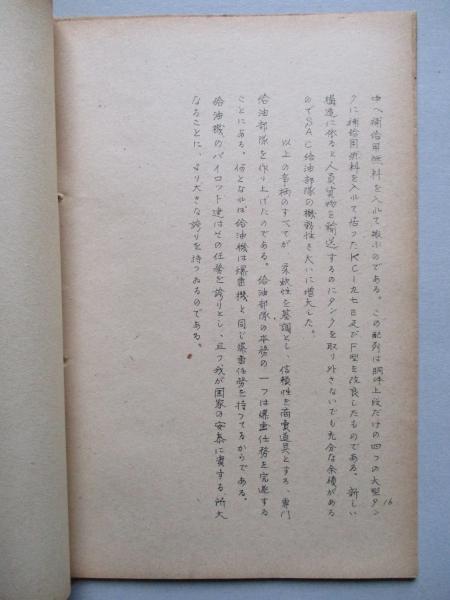 中へ補給用燃料を入れて運ぶのである。この配列は胴体上段だけの四つの大型タン
クに補給用燃料を入れて居ったKC-九七E及びF型を改良したものである。新しい
構造に依ると人員貨物を輸送するのにタンクを取り外さないでも充分な余積がある
のでSAC給油部隊の機動性を大いに増大した。
以上の事柄のすべてが、柔軟性を基調とし、信頼性を商売道具とする、専門
給油部隊を作り上げたのである。給油部隊の本務の一つは爆撃任務を完遂する
ことにある。何となれば給油機は爆撃機と同じ爆撃任務を持つてるからである。
給油機のパイロット達はその任務を誇りとし、且つ我が国家の安泰に資する所大
なることに、より大きな誇りを持つゐるのである。
16